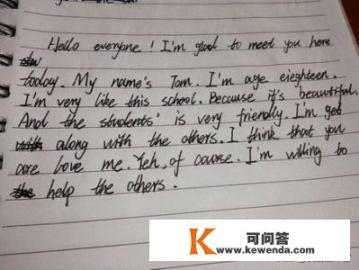 Hello everyone! I'm glad to meet you here
today. My name's Tom. I'm age eighteen.
I'm very like this school. Because it's beautiful.
And the students' is very friendly. I'm get
along with the others. I think that you
are love me. Yeh, of course. I'm willing to
help the others.
K 可问答
www.kewenda.com